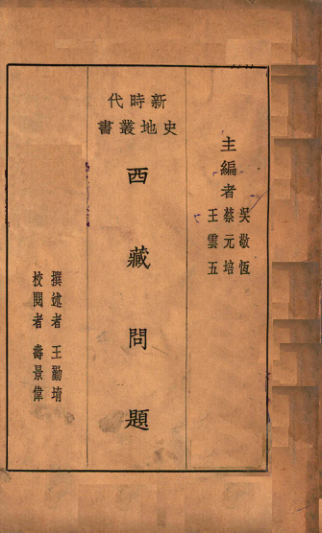 主編者
吳敬恆
蔡元培
王雲五
新時代
史地叢書
西藏問題
撰述者 王勤堉
校閱者 壽景偉